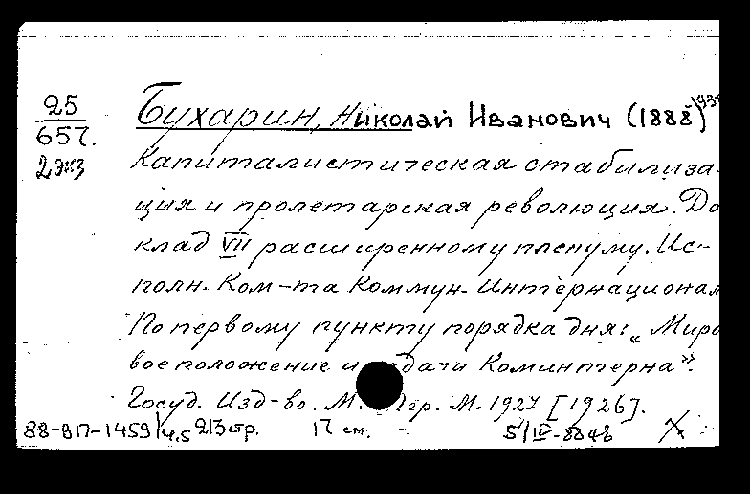 25
657.
2 экз
Бухарин, Николай Иванович (1888)
Капиталистическая стабилиза-
ция и пролетарская революция. До
клад VII расширенному пленуму. Ис-
полн. Ком-та Коммун. Интернационал
По первому пункту порядка дня: „Миро
вое положение и дачи Коминтерна".
Госуд. Изд-во. М. гр. М. 1927 [1926].
88-ВП-1459 ч,5 213 стр. 17 см. 5/IV-88